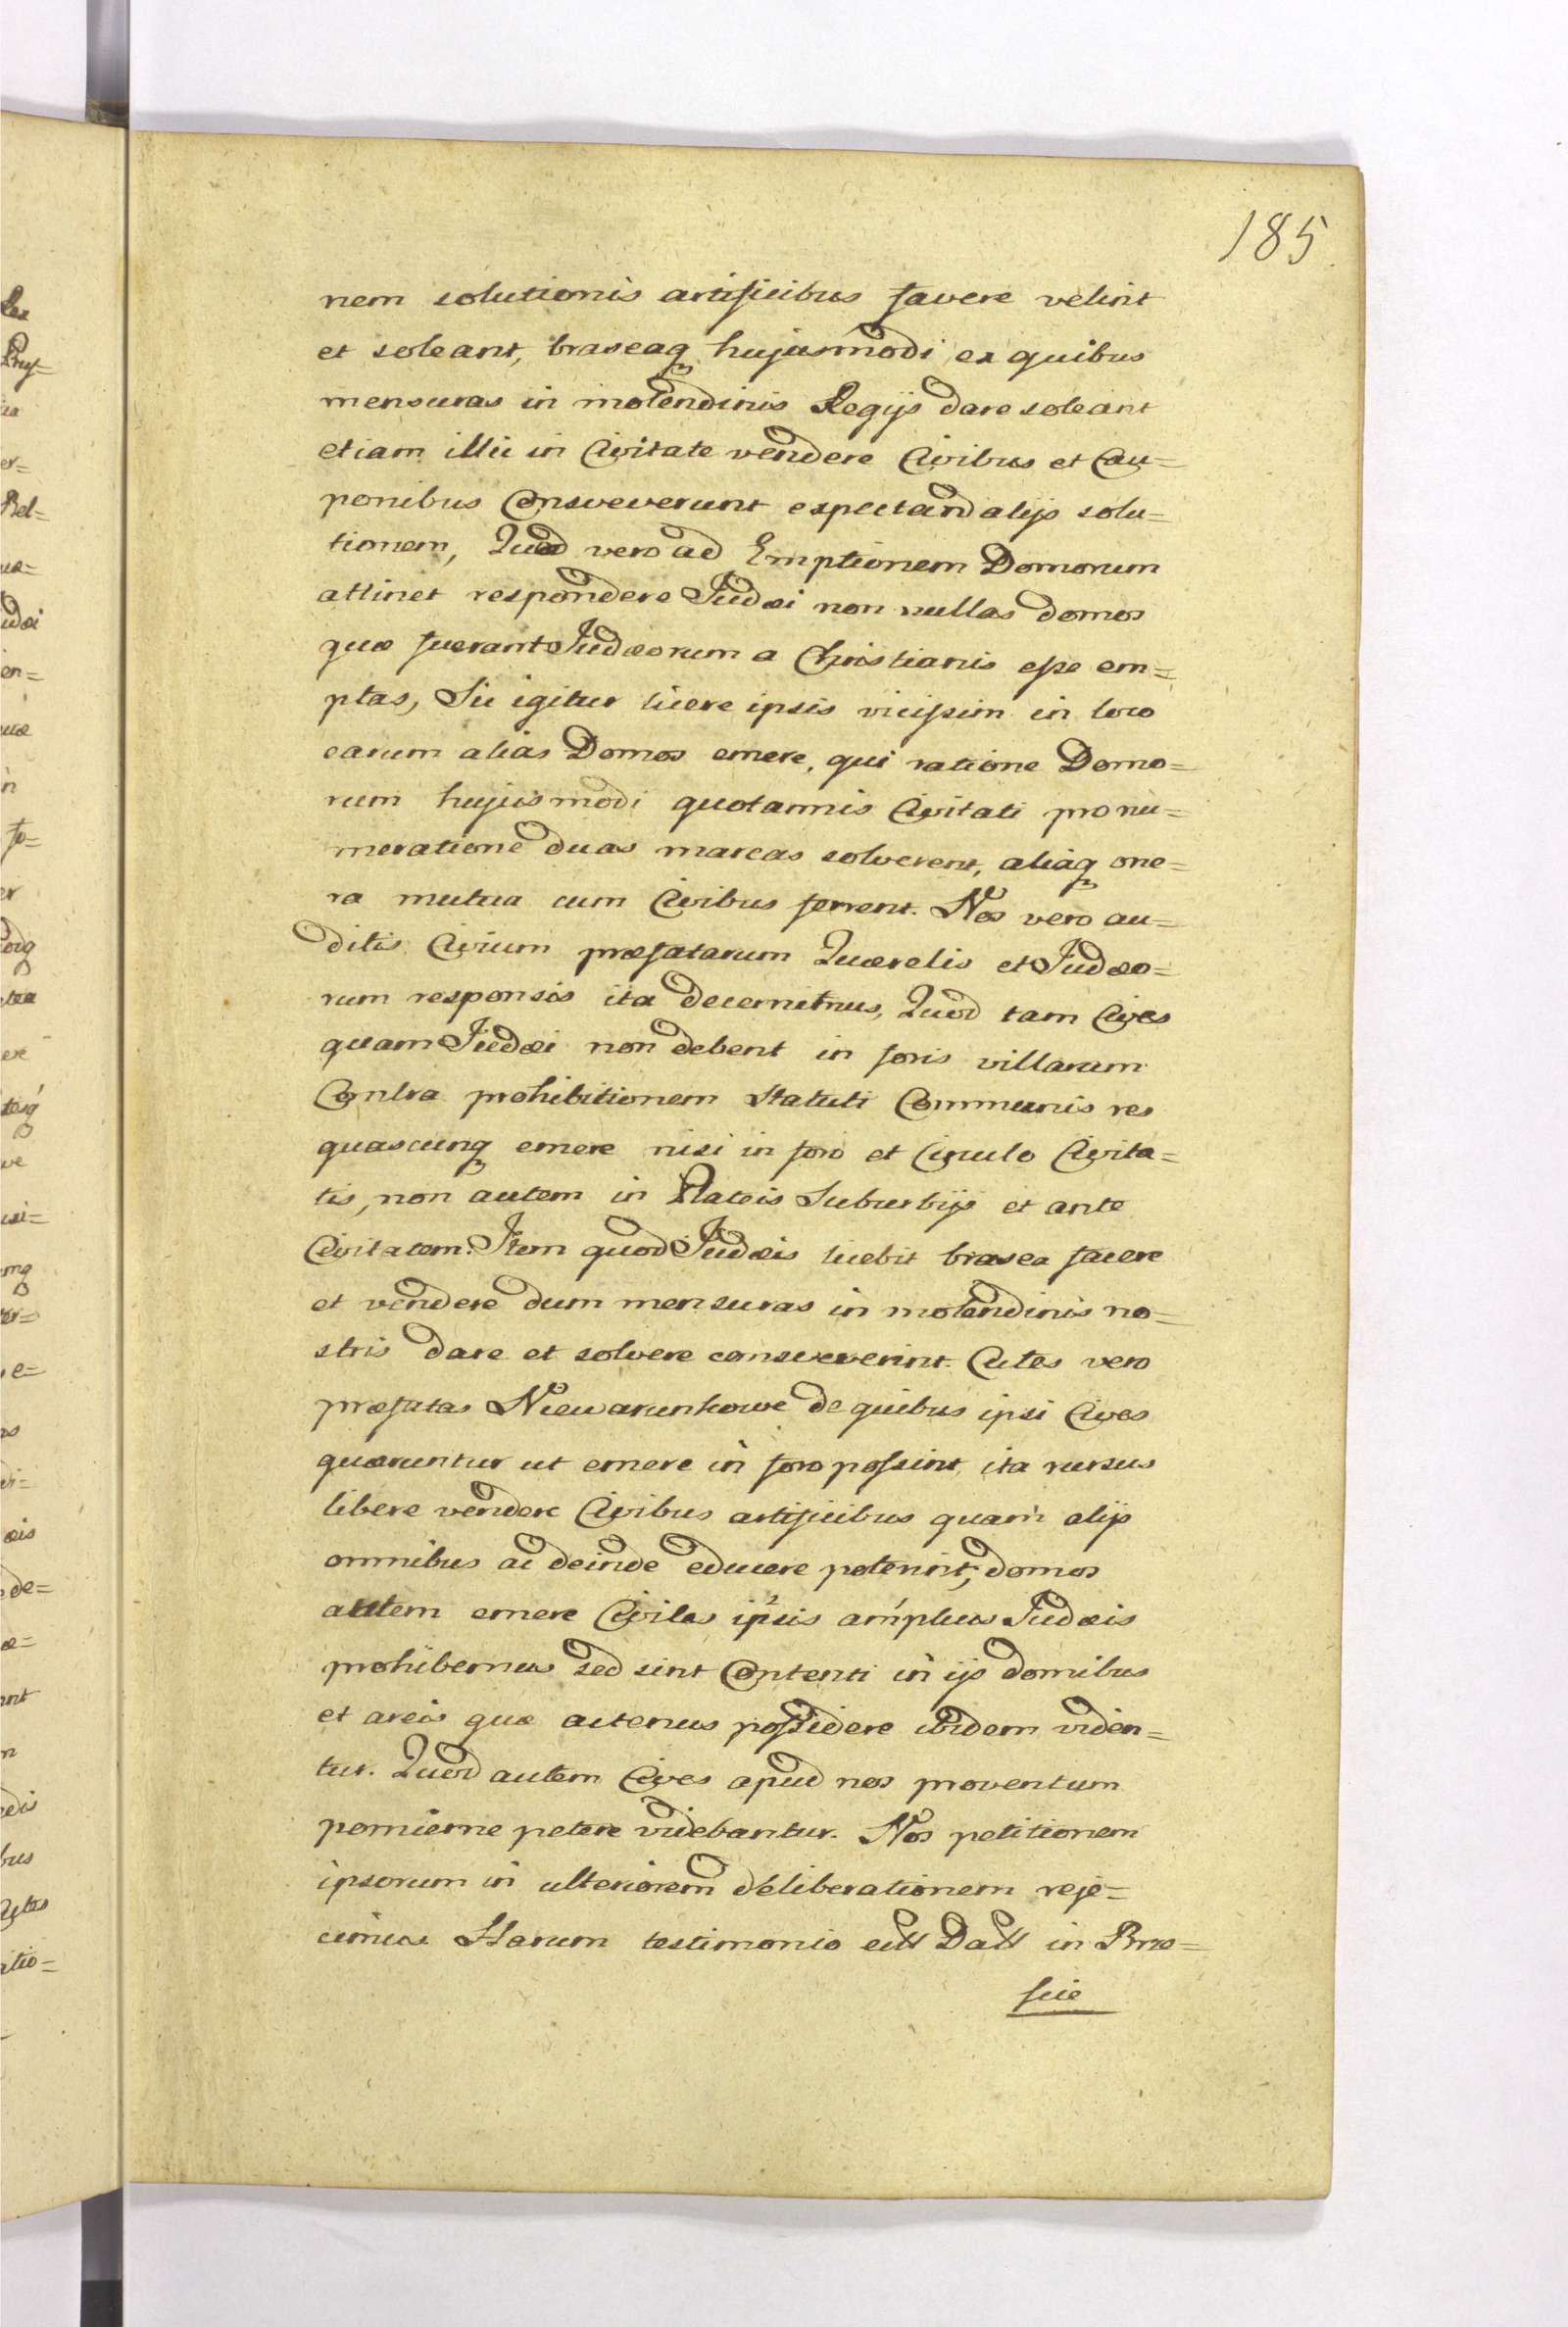 185
nem solutionis artificibus favere velint
et soleant, braseaq hujusmodi ex quibus
mensuras in molendinis Regijs dare soleant
etiam illic in Civitate vendere Civibus et Cau=
ponibus Consveverunt expectand alijs solu=
tionem, Quod vero ad Emptionem Domorum
attinet respondere Judæi non nullas domos
quæ fuerant Judæorum a Christianis esse em=
ptas, Sic igitur licere ipsis vicissim in loco
earum alias Domos emere, qui ratione Domo=
rum hujusmodi quotannis Civitati pro nu=
meratione duas marcas solverent, aliaq one=
ra mutua cum Civibus ferrent. Nos vero au=
ditis Civium præfatarum Quærelis et Judæo=
rum responsis ita decernimus, Quod tam Cives
quam Judæi non debent in foris villarum
Contra prohibitionem Statuti Communis res
quascunq emere nisi in foro et Circulo Civita=
tis, non autem in Plateis Suburbijs et ante
Civitatem. Item quod Judæis licebit brasea facere
et vendere dum mensuras in molendinis no=
stris dare et solvere consueverint. Cutes vero
præfatas Niewarunkowe de quibus ipsi Cives
quæruntur ut emere in foro possint, ita rursus
libere vendere Civibus artificibus quam alijs
omnibus ac deinde educere poterint, domos
autem emere Civiles ipsis amplius Judæis
prohibemus sed sint Contenti in ijs domibus
et areis quæ actenus possidere ibidem viden=
tur. Quod autem Cives apud nos proventum
pomierne petere videbantur. Nos petitionem
ipsorum in ulteriorem deliberationem reje=
cimus Harum testimonio Datt in Brze=
scie